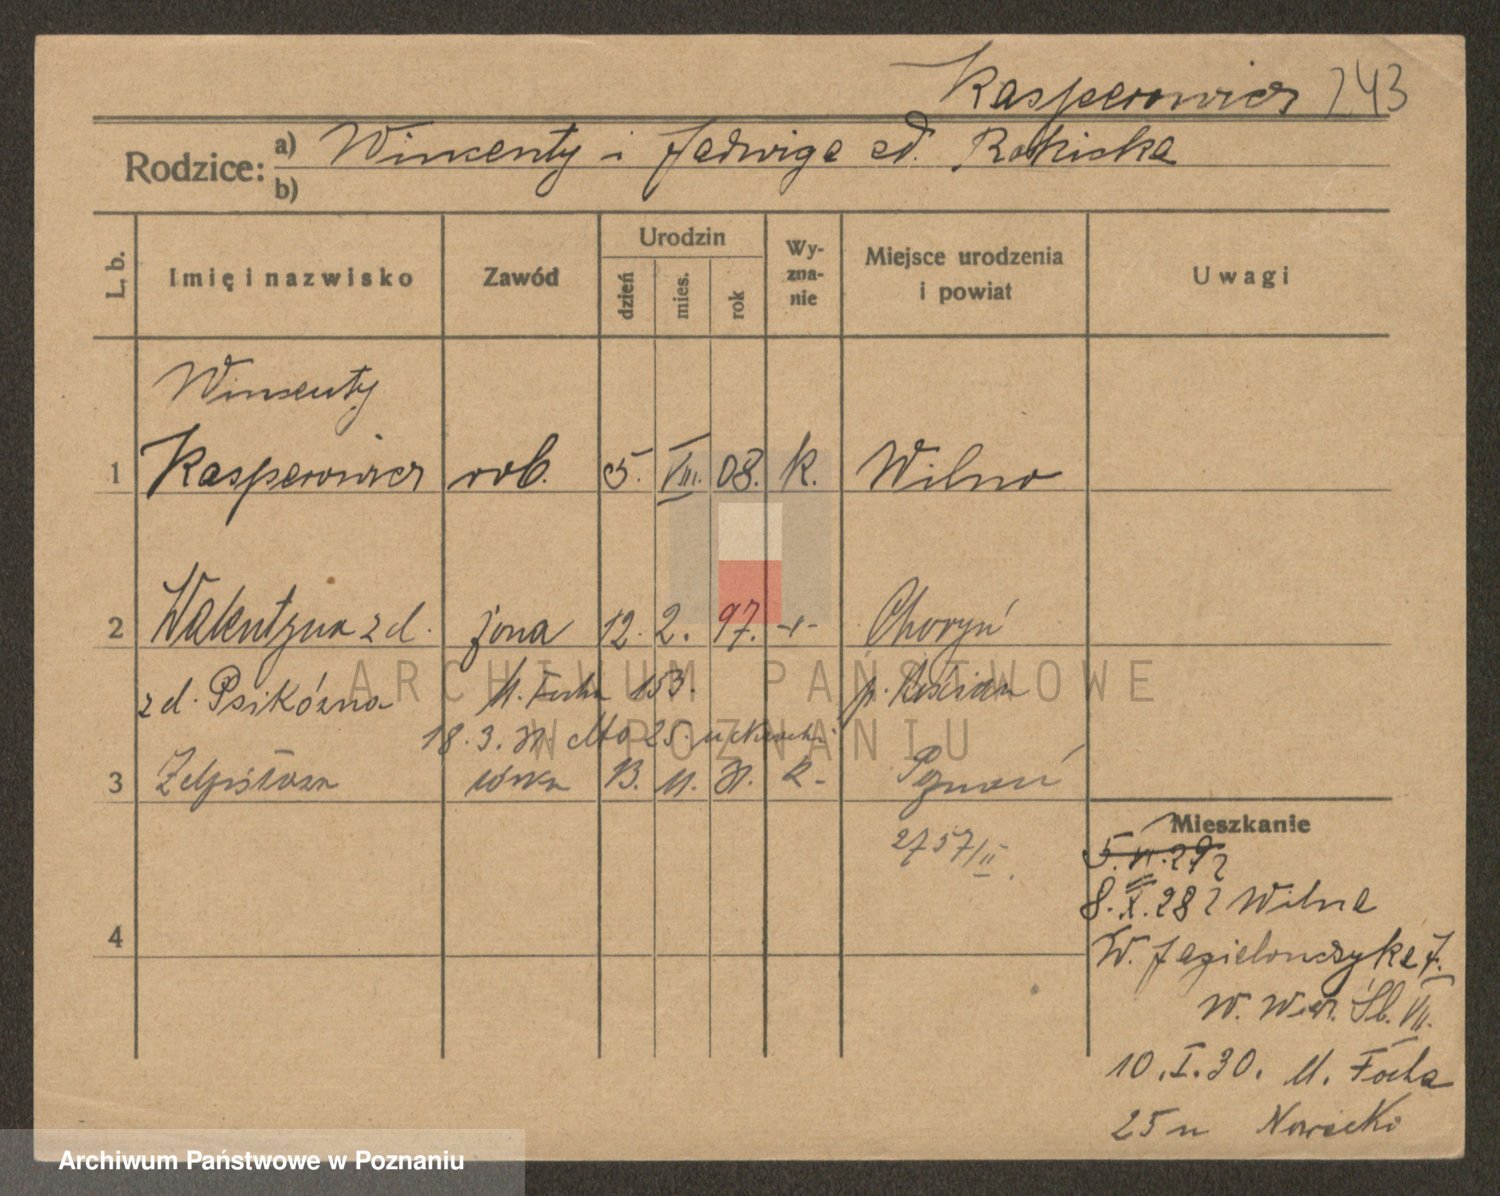 Kasperowicz 243
Rodzice: a) Wincenty i Jadwiga zd. Rokicka
b)
L. b. Imię i nazwisko Zawód Urodzin dzień mies. rok Wy-zna-nie Miejsce urodzenia i powiat Uwagi
Wincenty
1 Kasperowicz rob. 5. VIII. 08. k. Wilno
2 Walentyna zd. żona 12. 2. 97. -„- Choryń
zd. Psikówna M. Focha 153. p. Kościan
18. 3. 31. dto 25.
3 córka 13. 11. 31. k. Poznań
2757/II.
Mieszkanie
5. VI. 29 z
8. X. 28 z Wilna
4
W. Jagielończyka 7.
W. Wier. Śb. VII.
10. I. 30. M. Focha
25 u Nowacki
ARCHIWUM PAŃSTWOWE
W POZNANIU
Archiwum Państwowe w Poznaniu